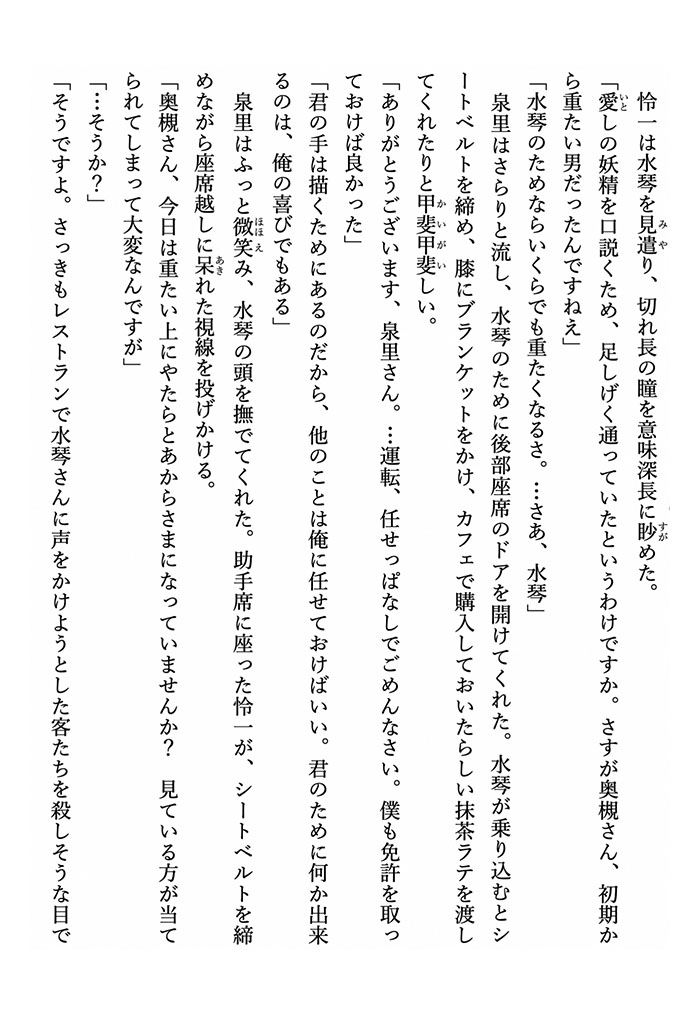 怜一は水琴を見遣り、切れ長の瞳を意味深長に眇めた。
「愛しの妖精を口説くため、足しげく通っていたというわけですか。さすが奥槻さん、初期か
ら重たい男だったんですねえ」
「水琴のためならいくらでも重たくなるさ。…さあ、水琴」
泉里はさらりと流し、水琴のために後部座席のドアを開けてくれた。水琴が乗り込むとシ
ートベルトを締め、膝にブランケットをかけ、カフェで購入しておいたらしい抹茶ラテを渡し
てくれたりと甲斐甲斐しい。
「ありがとうございます、泉里さん。…運転、任せっぱなしでごめんなさい。僕も免許を取っ
ておけば良かった」
「君の手は描くためにあるのだから、他のことは俺に任せておけばいい。君のために何か出来
るのは、俺の喜びでもある」
泉里はふっと微笑み、水琴の頭を撫でてくれた。助手席に座った怜一が、シートベルトを締
めながら座席越しに呆れた視線を投げかける。
「奥槻さん、今日は重たい上にやたらとあからさまになっていませんか？　見ている方が当て
られてしまって大変なんですが」
「…そうか？」
「そうですよ。さっきもレストランで水琴さんに声をかけようとした客たちを殺しそうな目で